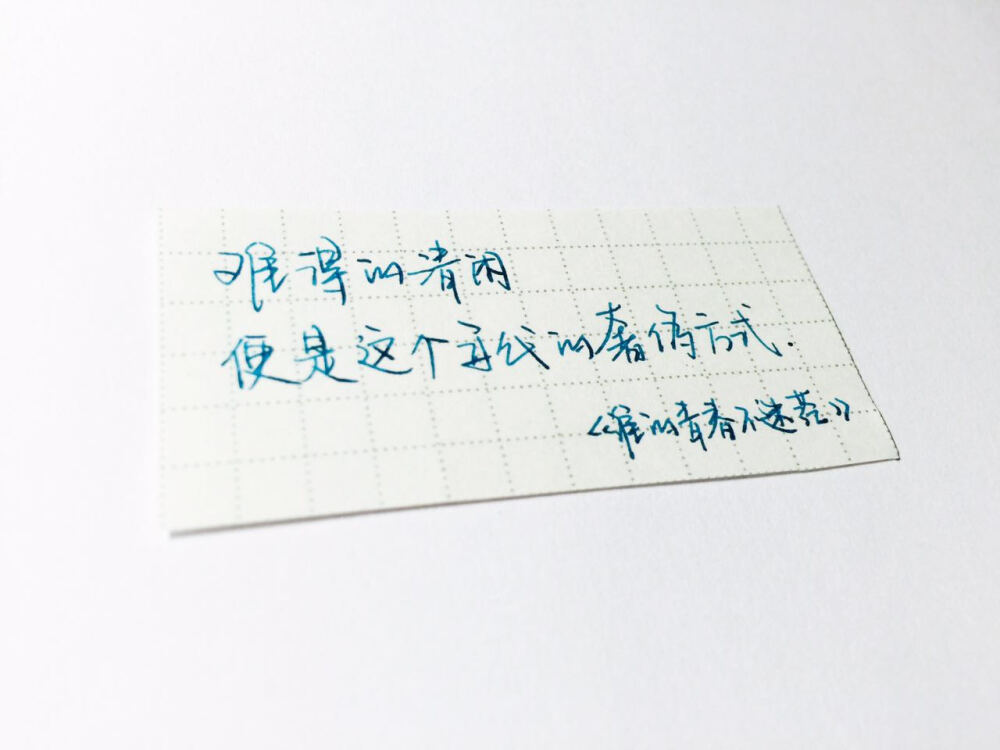 难得的清闲
便是这个手线的奢侈方式.
《谁的青春不迷茫》